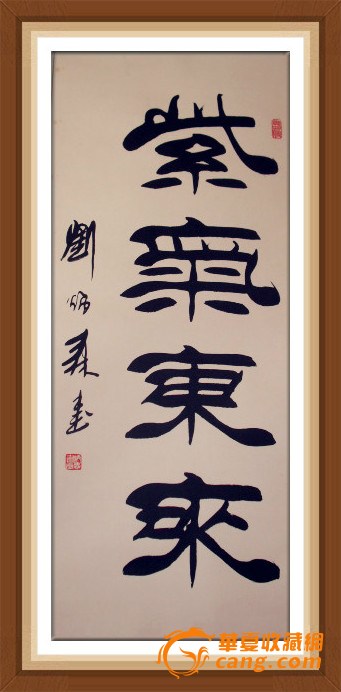 紫氣東來
劉炳森書
華夏收藏網
cang.com